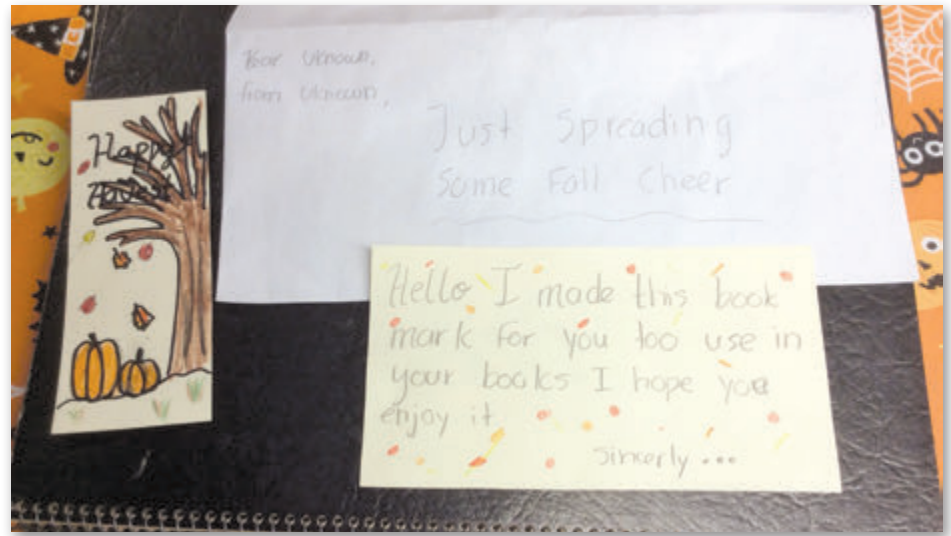 Dear Uknown,
from Uknown,
Just Spreading
Some Fall Cheer
Happy
Harvest
Hello I made this book
mark for you too use in
your books I hope you
enjoy it
sincerly ...